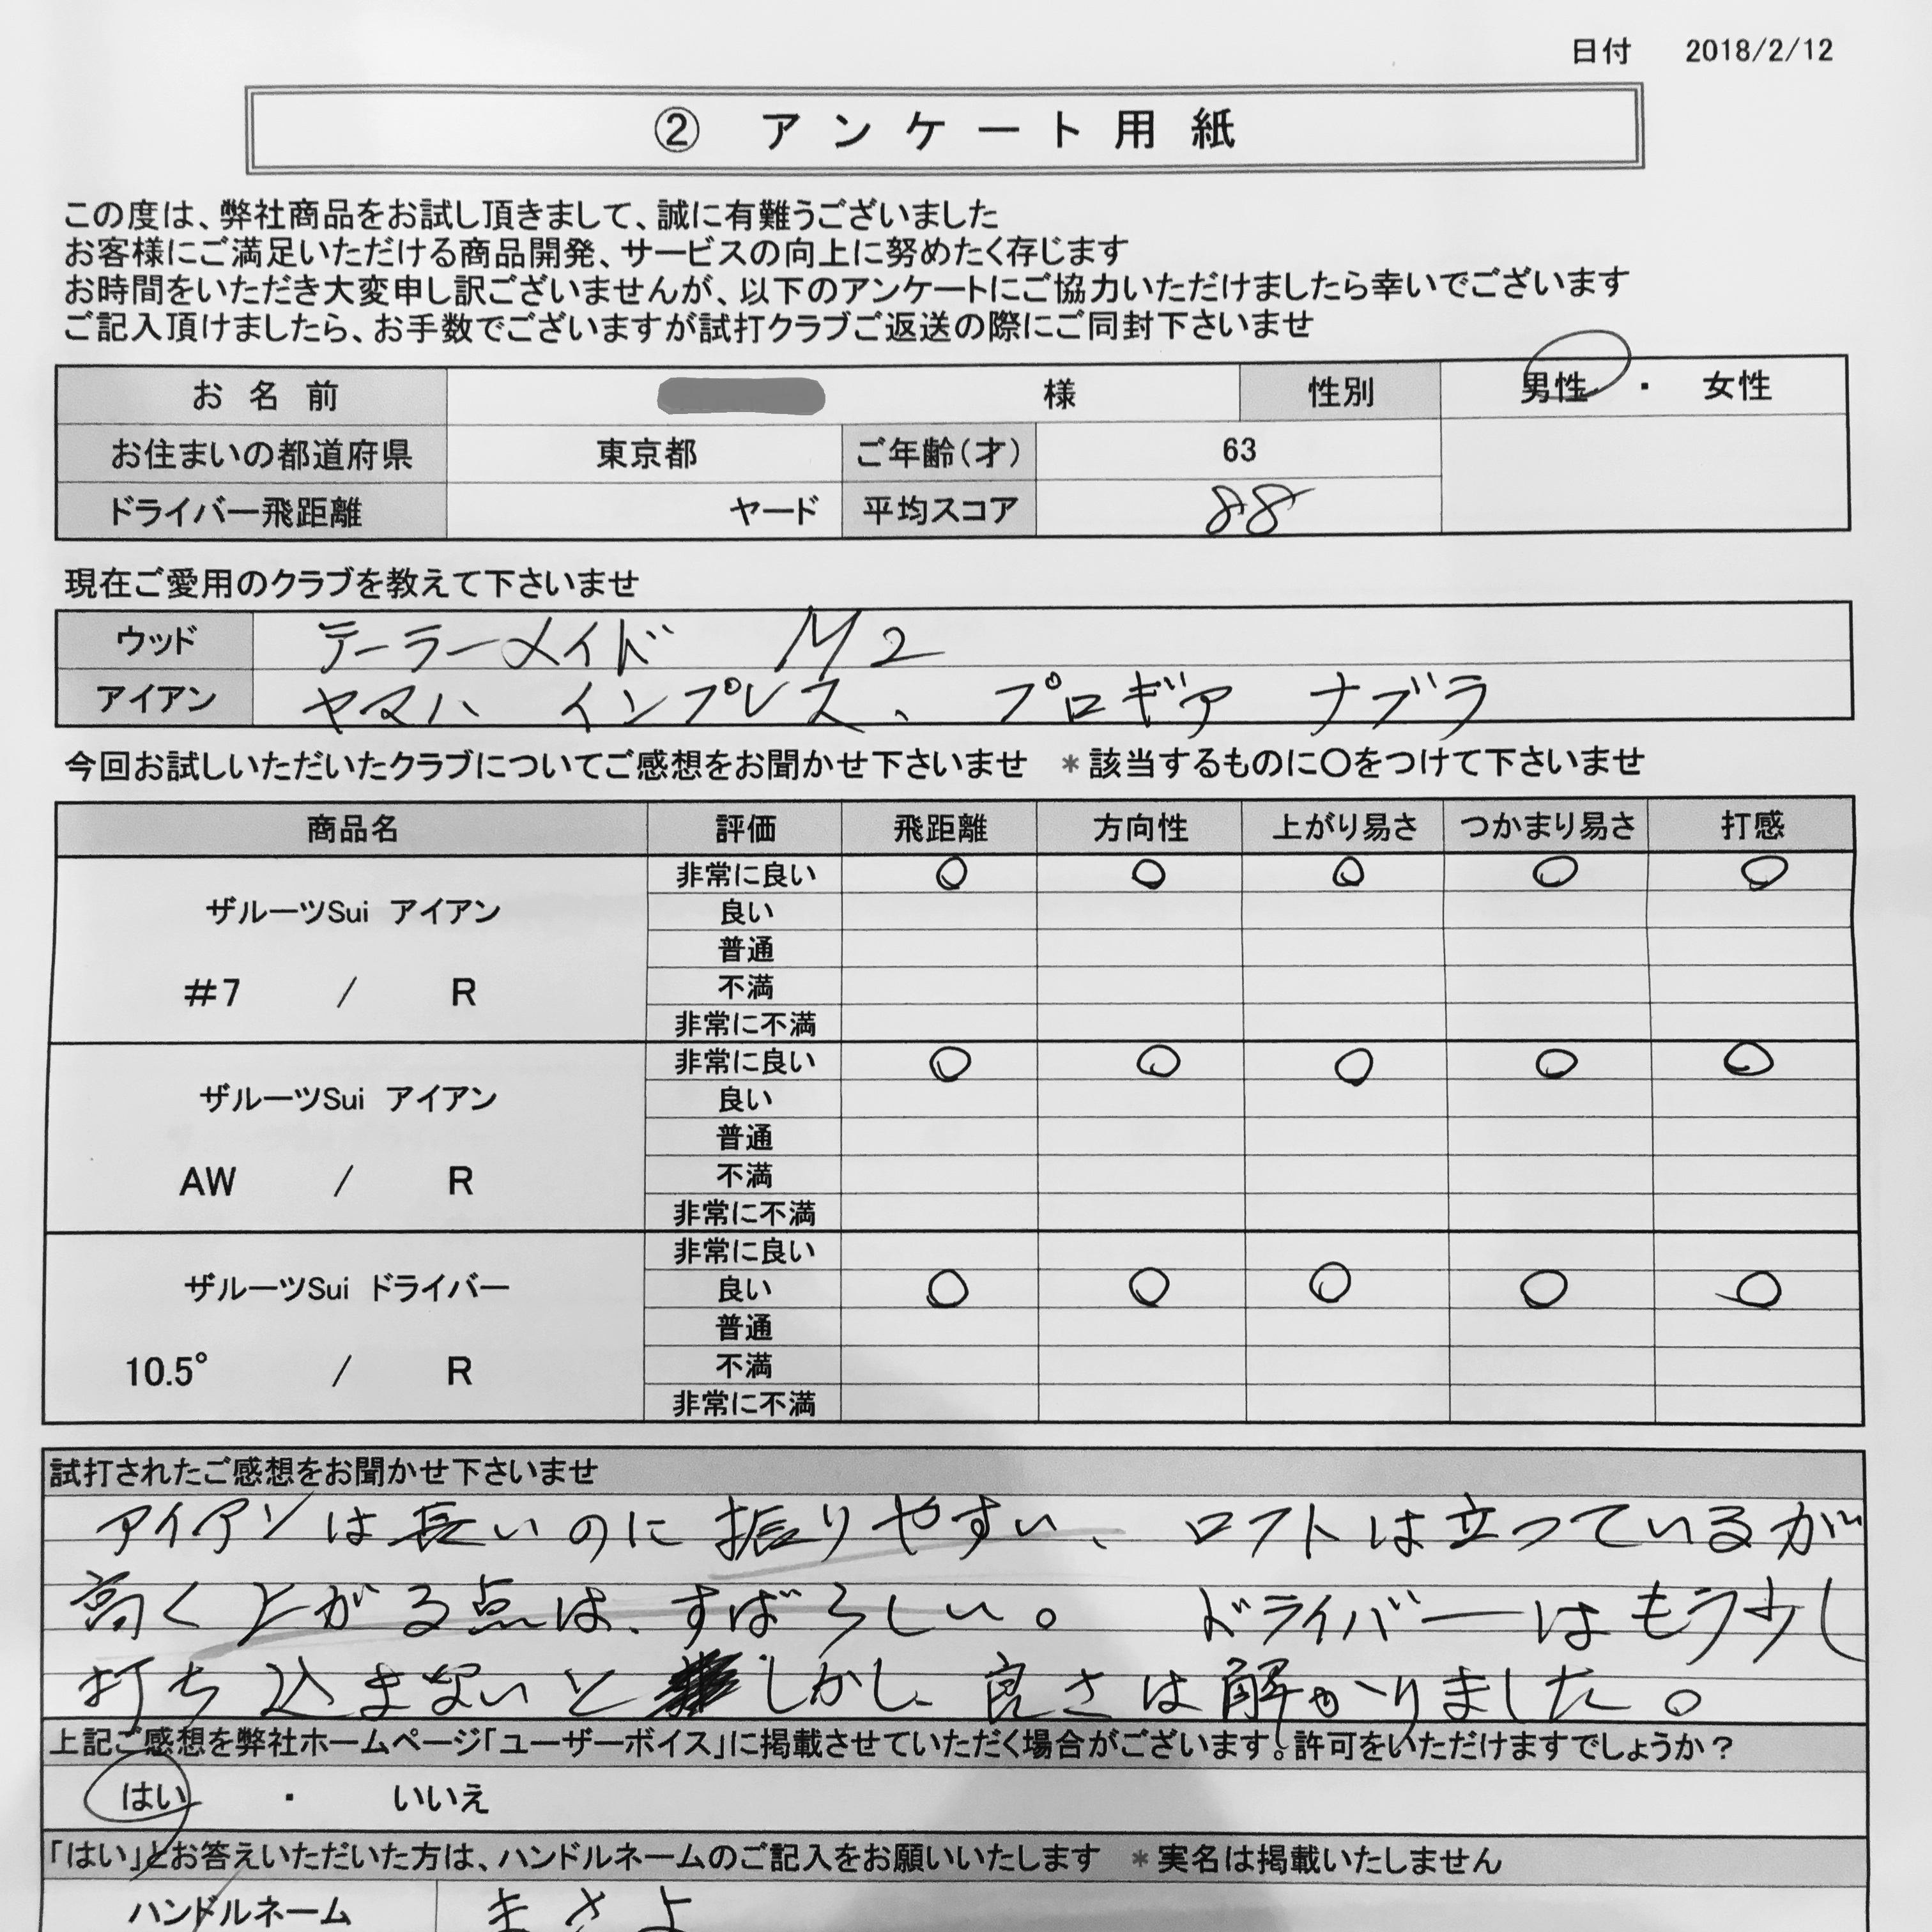 日付 2018/2/12
② アンケート用紙
この度は、弊社商品をお試し頂きまして、誠に有難うございました
お客様にご満足いただける商品開発、サービスの向上に努めたく存じます
お時間をいただき大変申し訳ございませんが、以下のアンケートにご協力いただけましたら幸いでございます
ご記入頂けましたら、お手数でございますが試打クラブご返送の際にご同封下さいませ
お名前 様 性別 男性 ・ 女性
お住まいの都道府県 東京都 ご年齢(才) 63
ドライバー飛距離 ヤード 平均スコア 88
現在ご愛用のクラブを教えて下さいませ
ウッド テーラーメイド M2
アイアン ヤマハ インプレス、 プロギア ナブラ
今回お試しいただいたクラブについてご感想をお聞かせ下さいませ *該当するものに〇をつけて下さいませ
商品名 評価 飛距離 方向性 上がり易さ つかまり易さ 打感
ザルーツSui アイアン
#7 / R
非常に良い 〇 〇 〇 〇 〇
良い
普通
不満
非常に不満
ザルーツSui アイアン
AW / R
非常に良い 〇 〇 〇 〇 〇
良い
普通
不満
非常に不満
ザルーツSui ドライバー
10.5° / R
非常に良い
良い 〇 〇 〇 〇 〇
普通
不満
非常に不満
試打されたご感想をお聞かせ下さいませ
アイアンは長いのに振りやすい、ロフトは立っているが
高く上がる点は、すばらしい。 ドライバーはもう少し
打ち込まないと しかし、良さは解かりました。
上記ご感想を弊社ホームページ「ユーザーボイス」に掲載させていただく場合がございます。許可をいただけますでしょうか?
はい ・ いいえ
「はい」とお答えいただいた方は、ハンドルネームのご記入をお願いいたします *実名は掲載いたしません
ハンドルネーム まさよ